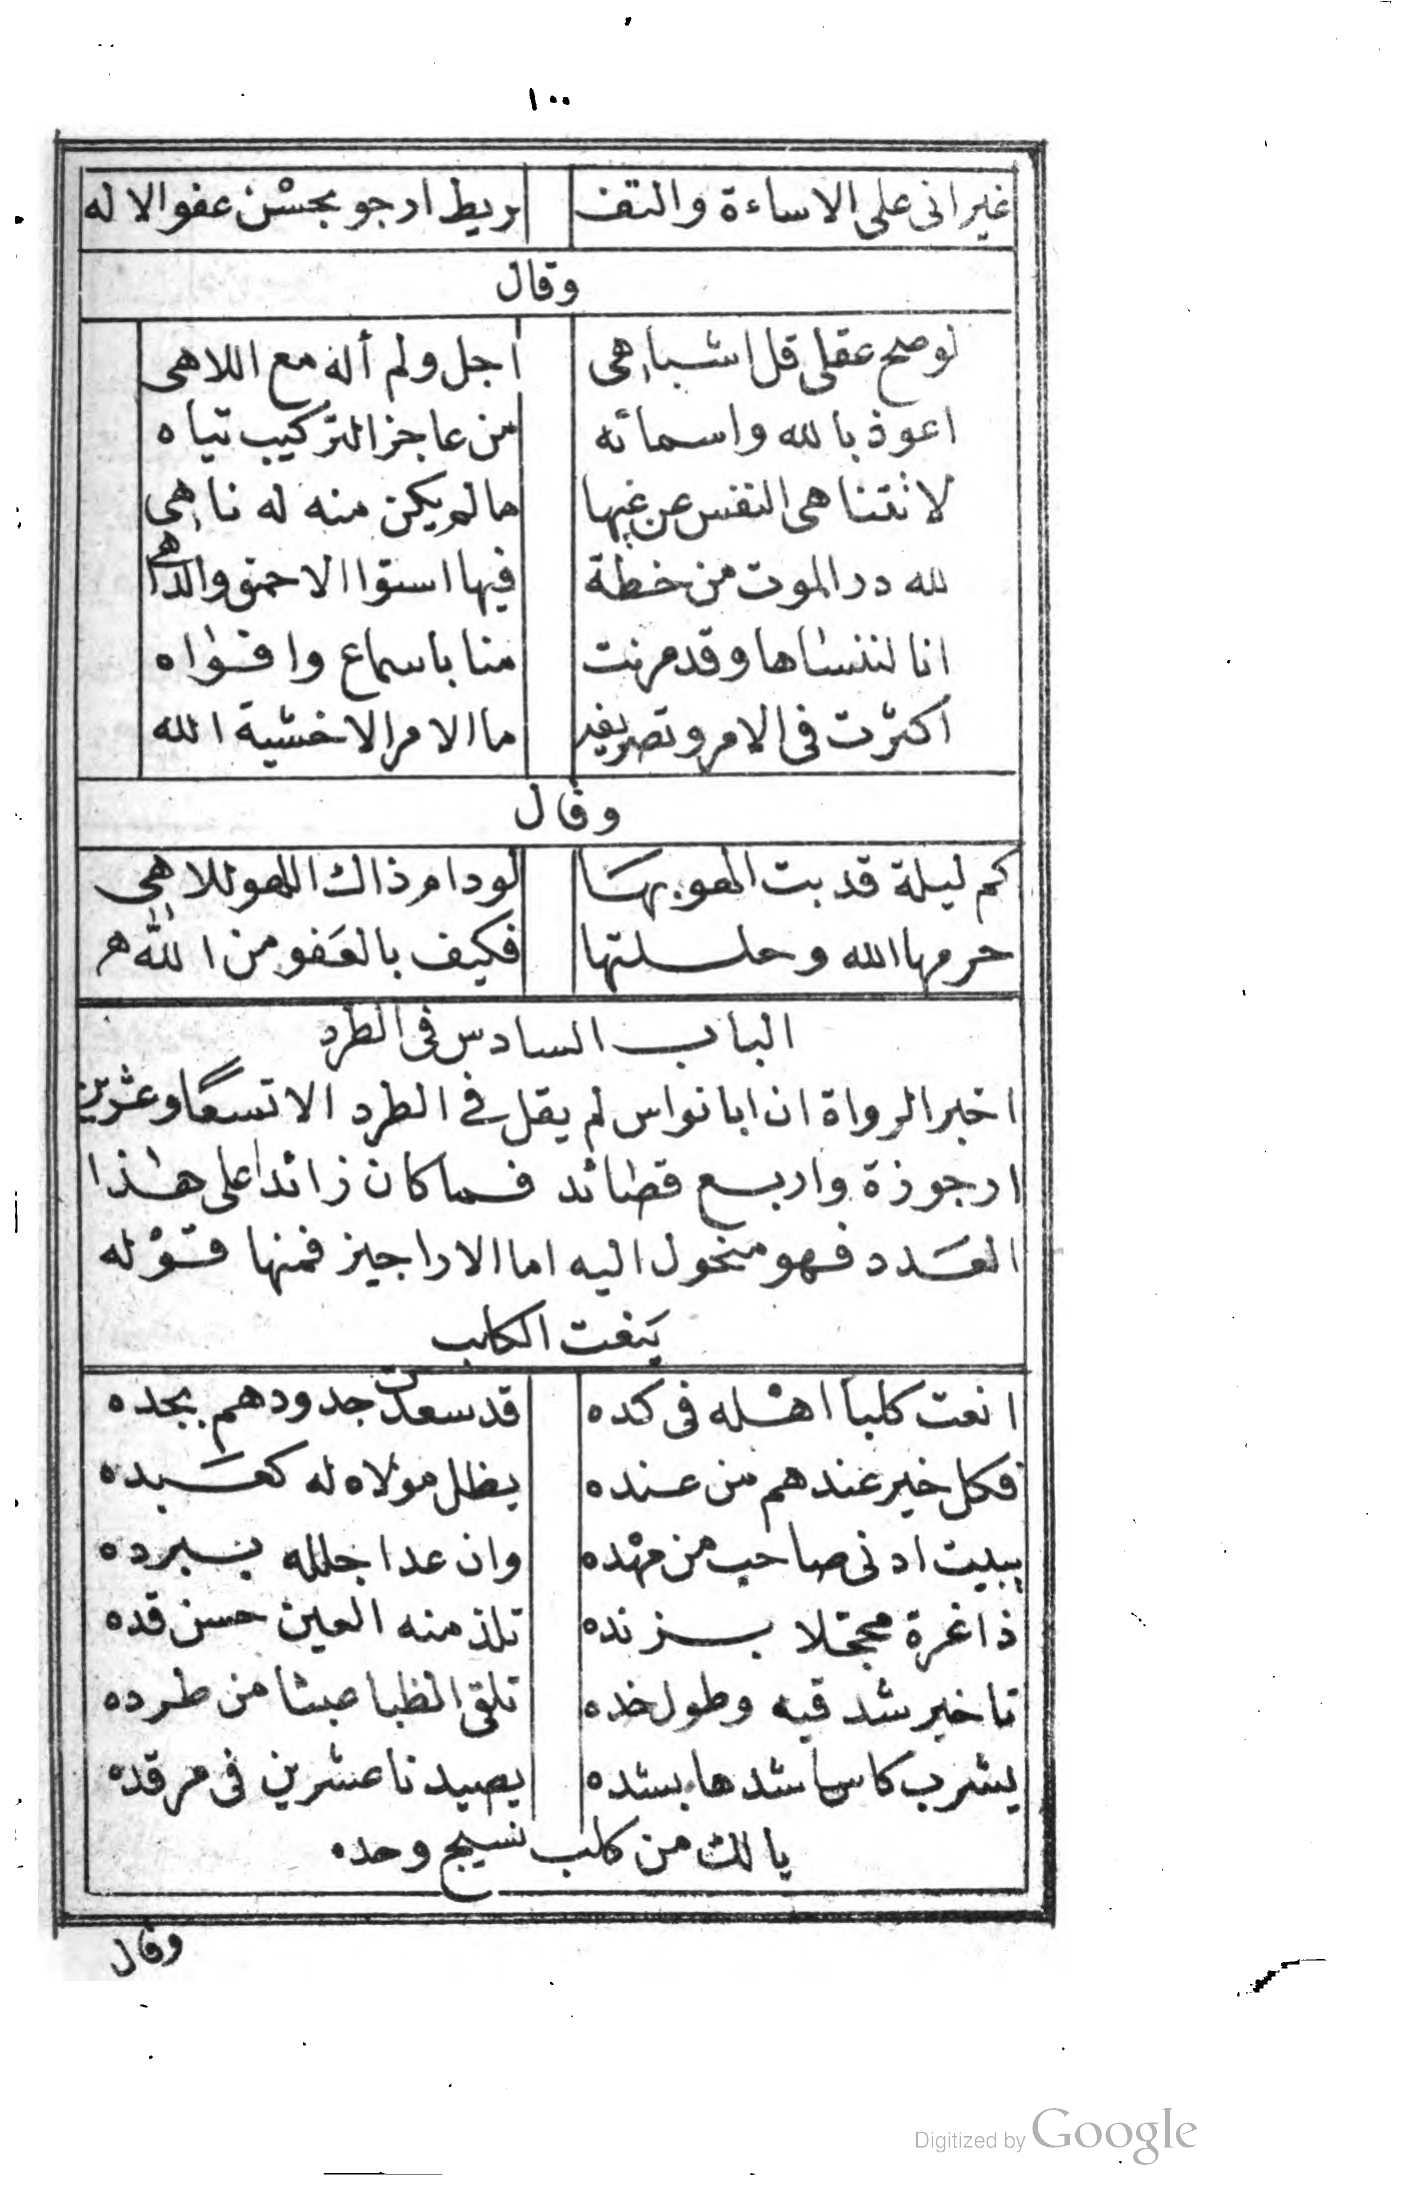 ١٠٠
غيرانى على الاساءة والتف ريط ارجو بحسْن عفو الاله
وقال
لوصح عقلى قل اشباهى اجل ولم أله مع اللاهى
اعوذ بالله واسمائه من عاجز التركيب تياه
لا تتناهى النفس عن غيها مالم يكن منه له ناهى
لله در الموت من خطة فيها استوا الاحمق والداهى
انا لننساها وقد مرنت منا باسماع وافواه
اكثرت فى الامر وتصريفه ما الامر الا خشية الله
وقال
كم ليلة قد بت الهو بها لو دام ذاك اللهو للاهى
حرمها الله وحللتها فكيف بالعَفو من الله
الباب السادس فى الطرد
اخبر الرواة ان ابا نواس لم يقل فى الطرد الا تسعًا وعشرين
ارجوزة واربع قصائد فما كان زائدا على هذا
العَدد فهو منحول اليه اما الاراجيز فمنها قوْله
يَنعت الكلب
انعت كلبا اهْله فى كده قد سعدت جدودهم بجده
فكل خير عندهم من عنده يظل مولاه له كعَبده
يبيت ادنى صاحب من مهْده وان عدا جلله ببرده
ذا غرة محجلا بزنده تلذ منه العين حسن قده
تاخير شدقيه وطول خده تلقى الظبا عبثا من طرده
يشرب كاس شدها بشده يصيدنا عشرين فى مرقده
يا لك من كلب نسيج وحده
وقال
Digitized by Google